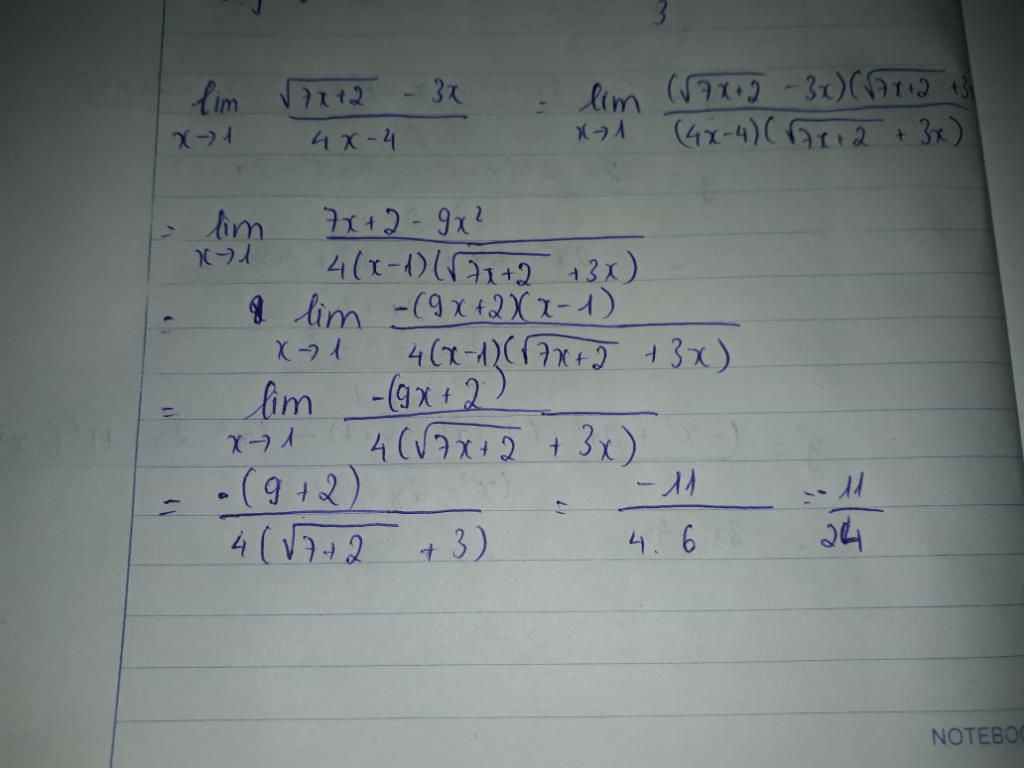 3
lim x→1 (√(7x+2) - 3x)/(4x-4) = lim x→1 ((√(7x+2) - 3x)(√(7x+2) +3)/((4x-4)(√(7x+2) + 3x))
= lim x→1 (7x+2 - 9x²)/(4(x-1)(√(7x+2) +3x))
= lim x→1 (-(9x+2)(x-1))/(4(x-1)(√(7x+2) +3x))
= lim x→1 (-(9x+2))/(4(√(7x+2) + 3x))
= (-(9+2))/(4(√(7+2) + 3)) = (-11)/(4.6) = -11/24
NOTEBOO